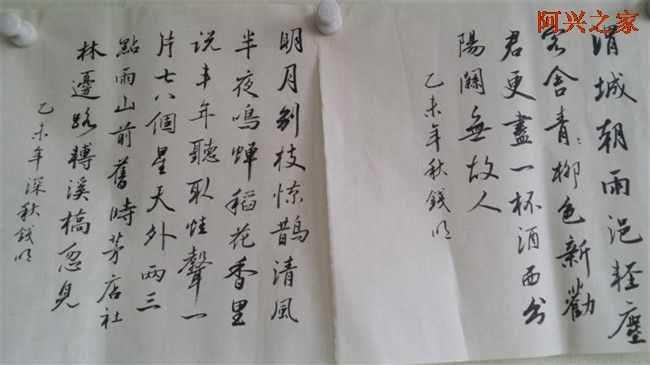 阿兴之家
渭城朝雨浥輕塵
客舍青々柳色新勸
君更盡一杯酒西出
陽關無故人
乙未年秋錢明
明月别枝惊鵲清風
半夜鳴蝉稻花香里
说丰年聽取蛙聲一
片七八個星天外兩三
點雨山前舊時茅店社
林邊路轉溪橋忽見
乙未年深秋錢明